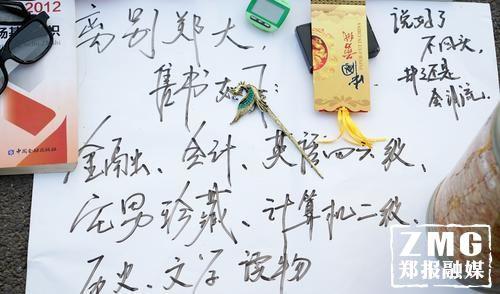 2012
离别郑大，
售书如下：
金融、会计、英语四六级、
宅男珍藏、计算机二级、
历史、文学读物
说好了
不回头，
却还是
会泪流。
中国金融出版社
中国
ZMG
郑报融媒